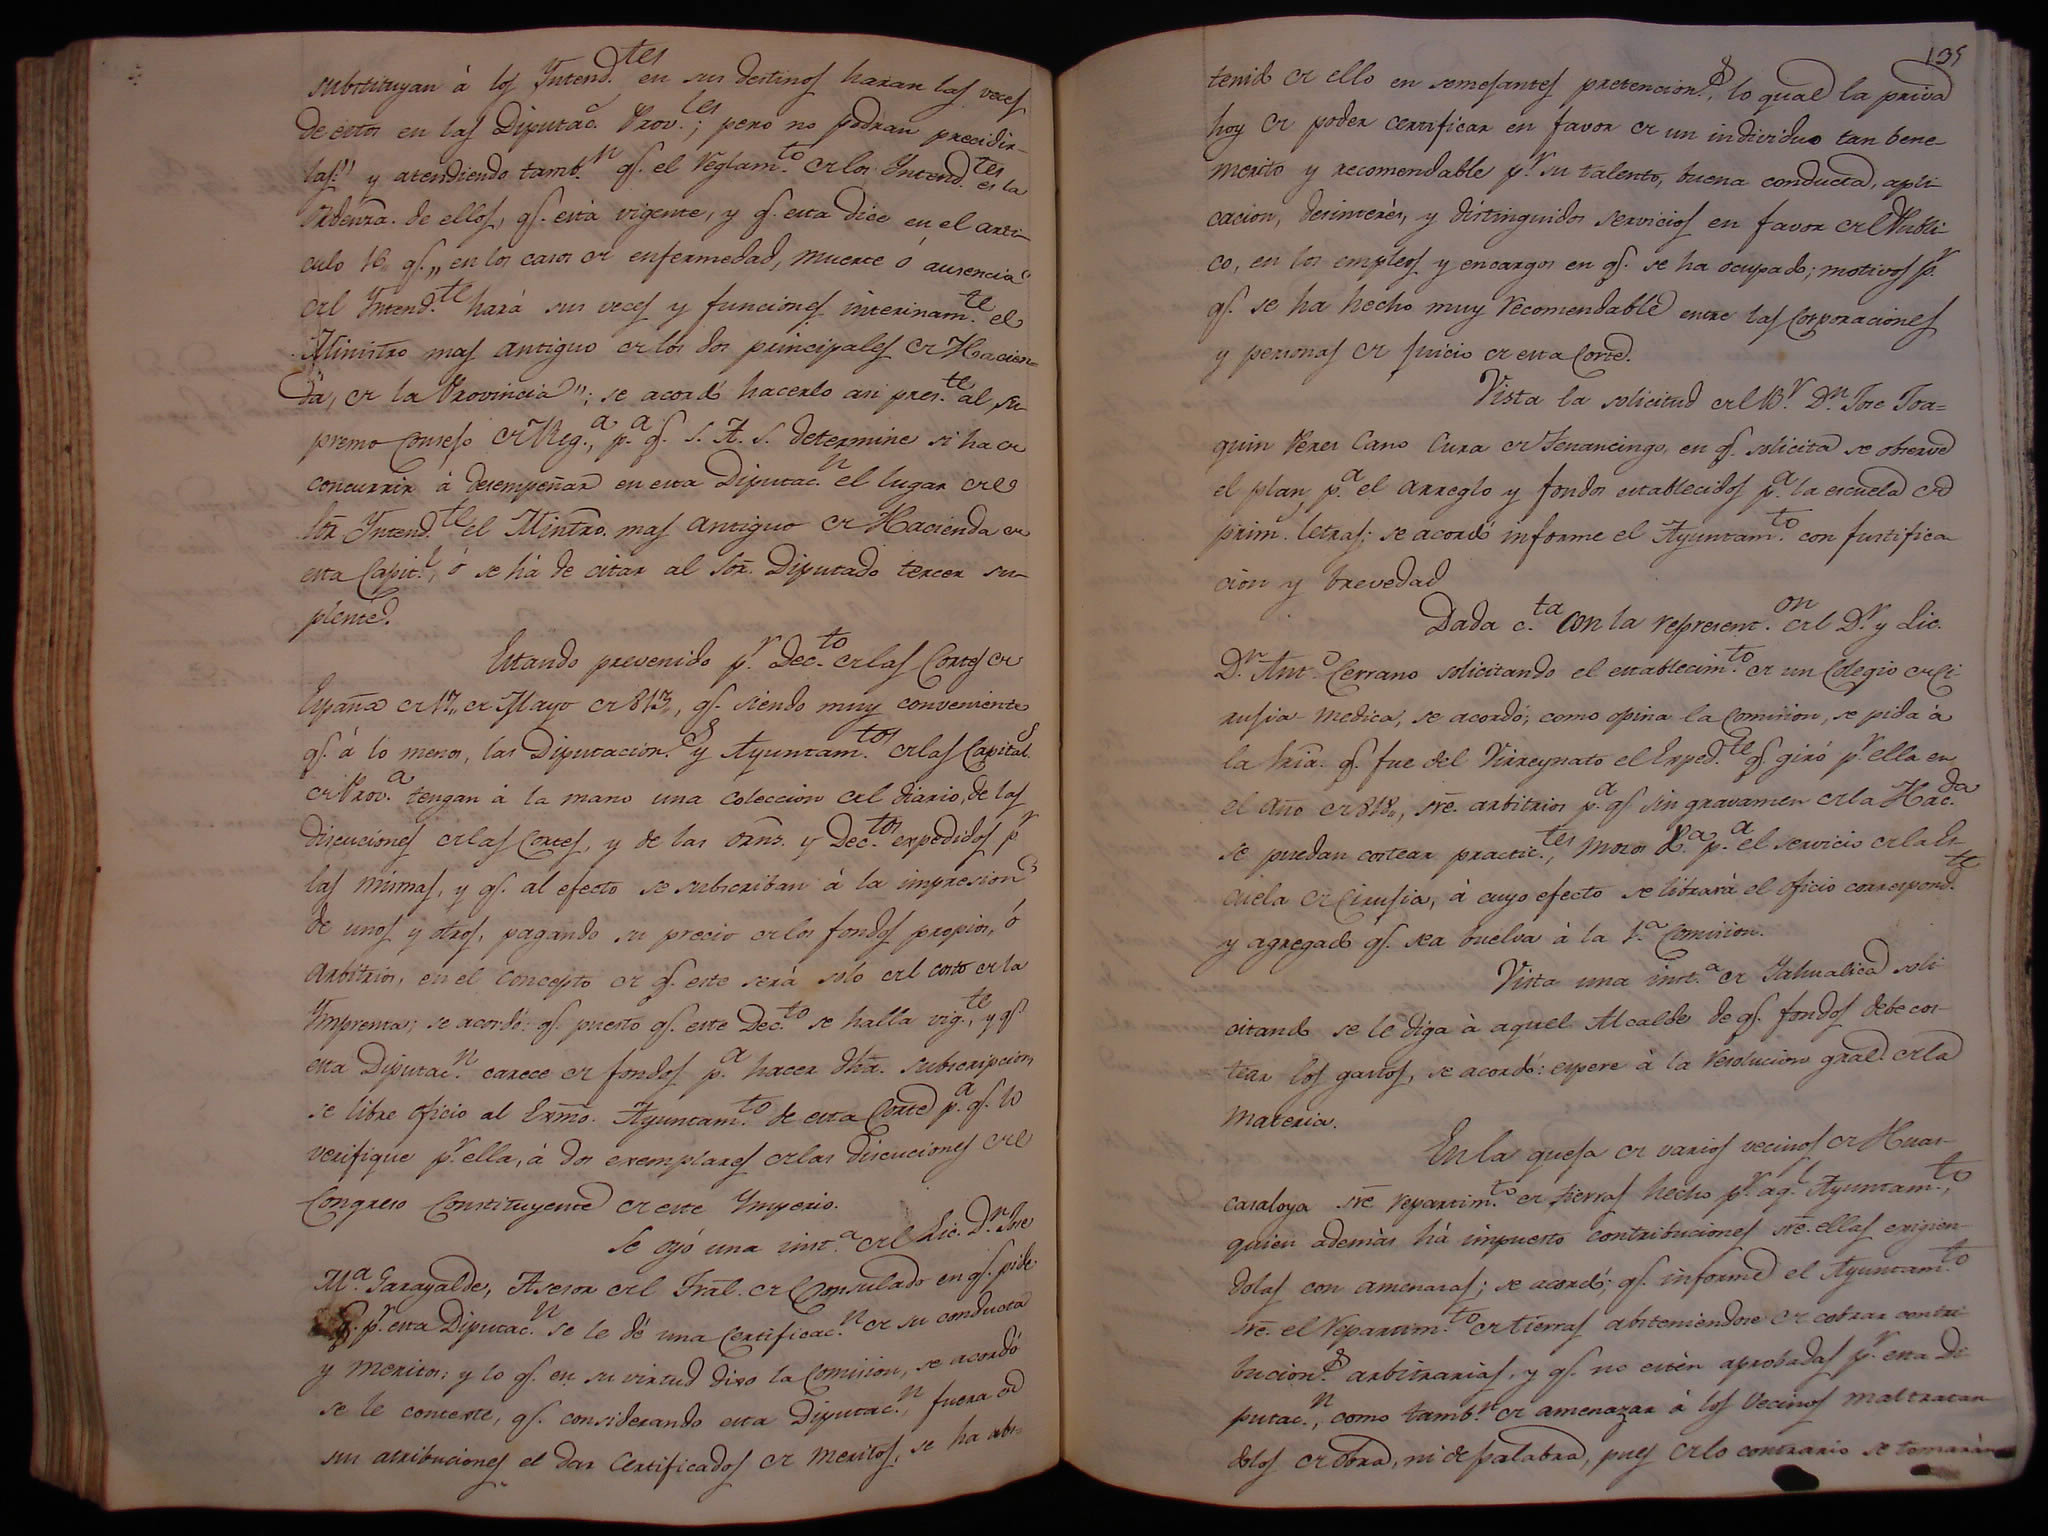 substituyan à los Intend.tes en sus destinos haran las veces
de estos en las Diputac.s Prov.les; pero no podran precidir-
las." y atendiendo tamb.n q.e el Reglam.to de los Intend.tes es la
Ordenza. de ellos, q.e està vigente, y q.e esta dice en el arti-
culo 16,, q.e ,,en los casos de enfermedad, muerte ó ausencia
del Intend.te harà sus veces y funciones interinam.te el
Ministro mas antiguo de los dos principales de Hacien-
da, de la Provincia"; se acordó hacerlo asi pres.te al Su-
premo Consejo de Reg.a, p.a q.e S. A. S. determine si ha de
concurrir à desempeñar en esta Diputac.n el lugar del
Sõr Intend.te el Mintro. mas antiguo de Hacienda de
esta Capit.l, ó se hà de citar al Sõr. Diputado tercer su-
plente.
Estando prevenido p.r Dec.to de las Cortes de
España de 17,, de Mayo de 813,, q.e siendo muy conveniente
q.e à lo menos, las Diputacion.es y Ayuntam.tos de las Capital.s
de Prov.a tengan à la mano una coleccion del diario, de las
discuciones de las Cortes, y de las orns. y Dec.tos expedidos p.r
las mismas, y q.e al efecto se subscriban à la impresion
de unos y otros, pagando su precio de los fondos propios, ó
arbitrios, en el concepto de q.e este serà solo del costo de la
Imprenta; se acordó: q.e puesto q.e este Dec.to se halla vig.te, y q.e
esta Diputac.n carece de fondos p.a hacer dha. subscripcion,
se libre oficio al Exmo. Ayuntam.to de esta Corte p.a q.e lo
verifique p.r ella, à dos exemplares de las discuciones del
Congreso Constituyente de este Imperio.
Se oyó una inst.a del Lic. D.n Jose
M.a Garayalde, Asesor del Tral. del Consulado en q.e pide
p.r esta Diputac.n se le dé una certificac.n de su conducta
y meritos; y lo q.e en su virtud dixo la Comision, se acordó
se le conteste, q.e considerando esta Diputac.n, fuera de
sus atribuciones el dar certificados de meritos, se ha abs-
135
tenido de ello en semejantes pretencion.s, lo qual la priva
hoy de poder certificar en favor de un individuo tan bene-
merito y recomendable p.r su talento, buena conducta, apli-
cacion, desinterès, y distinguidos servicios en favor del Publi-
co, en los empleos y encargos en q.e se ha ocupado; motivos p.r
q.e se ha hecho muy recomendable entre las Corporaciones
y personas de juicio de esta Corte.
Vista la solicitud del B.r D.n Jose Joa=
quin Perez Cano Cura de Tenancingo, en q.e solicita se observe
el plan, p.a el arreglo y fondos establecidos p.a la escuela de
prim. letras; se acordó informe el Ayuntam.to con justifica
cion y brevedad
Dada c.ta con la represent.on del D.r y Lic.
D.n Ant.o Cerrano solicitando el establecim.to de un Colegio de Ci
rujia-medica, se acordó; como opina la Comision, se pida à
la Sria. q.e fue del Virreynato el Exped.te q.e giró p.r ella en
el año de 818,, sre. arbitrios p.a q.e sin gravamen de la Hac.da
se puedan costear practic.tes, mozos &.a p.a el servicio de la Es
cuela de Cirujia, à cuyo efecto se librarà el oficio correspond.te
y agregado q.e sea buelva à la 1.a Comision.
Vista una inst.a de Yahualica soli
citando se le diga à aquel Alcalde de q.e fondos debe cos-
tear los gastos, se acordó: espere à la resolucion gral. de la
materia.
En la queja de varios vecinos de Huas-
casaloya sre. repartim.to de tierras hecho p.r aq.l Ayuntam.to,
quien ademàs hà impuesto contribuciones sre. ellas exigien-
dolas con amenazas; se acordó; q.e informe el Ayuntam.to
sre. el repartim.to de tierras absteniendose de cobrar contri
bucion.s arbitrarias, y q.e no estèn aprobadas p.r esta Di
putac.n, como tamb.n de amenazar à los Vecinos maltratan
dolos de obra, ni de palabra, pues de lo contrario se tomaràn